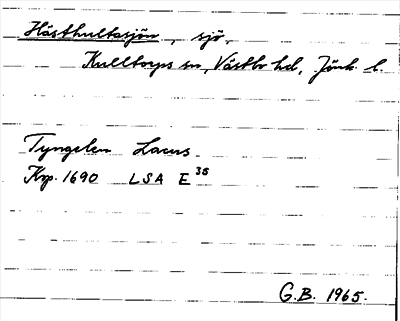 Hästhultasjön, sjö,
Kulltorps sn, Västbo hd, Jönk. l.
Tyngelen Lacus
Krp. 1690 LSA E³⁵
G.B. 1965.